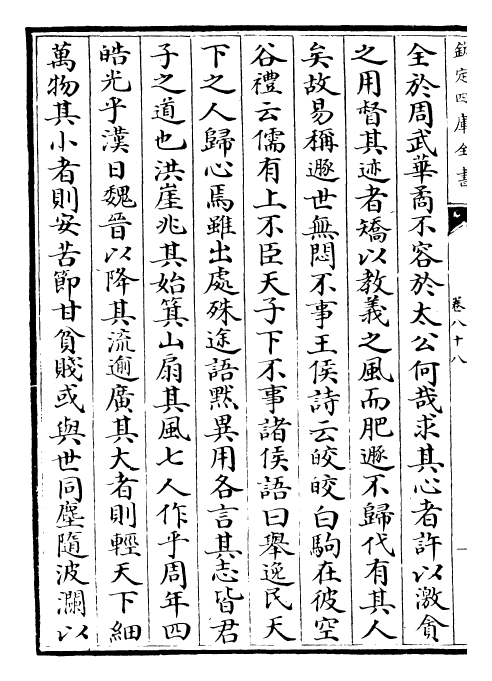 欽定四庫全書
卷八十八
一
全於周武華矞不容於太公何哉求其心者許以激貪
之用督其迹者矯以教義之風而肥遯不歸代有其人
矣故易稱遯世無悶不事王侯詩云皎皎白駒在彼空
谷禮云儒有上不臣天子下不事諸侯語曰舉逸民天
下之人歸心焉雖出處殊途語黙異用各言其志皆君
子之道也洪崖兆其始箕山扇其風七人作乎周年四
皓光乎漢日魏晉以降其流逾廣其大者則輕天下細
萬物其小者則安苦節甘貧賤或與世同塵隨波瀾以